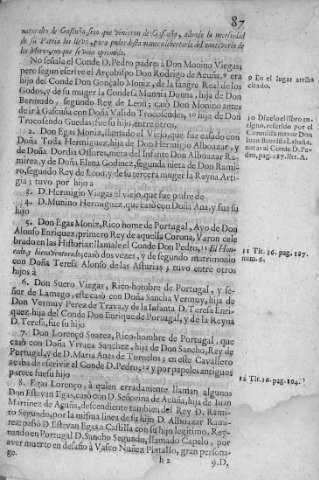 87
naturales de Gascuña, sino que vinieron de Gascuña, adonde la necessidad
de su Patria los llevò, para poder desta nueva libertarla del cautiverio de
los Moros, en que se veia oprimida.
No señala el Conde D. Pedro padres à Don Monino Viegas;
pero segun escrive el Arçobispo Don Rodrigo de Acuña, 9 era
hijo del Conde Don Gonçalo Moniz, de la sangre Real de los
Godos, y de su muger la Condesa Mumia Donna, hija de Don
Bermudo, segundo Rey de Leon; casò Don Monino antes
de ir à Gascuña con Doña Valido Trocosendez, 10 hija de Don
Trocosendo Guedas; fue su hijo entre otros.
2. Don Egas Moniz, llamado el Viejo, que fue casado con
Doña Toda Hermiguiz, hija de Don Hermigio Alboazar, y
de Doña Dordia Osorez, nieta del Infante Don Alboazar Ra-
mirez, y de Doña Elena Godinez, segunda nieta de Don Rami-
ro, segundo Rey de Leon, y de su tercera muger la Reyna Arti-
gia; tuvo por hijo a
3. D. Hermigio Viegas el viejo, que fue padre de
4. D. Munino Hermiguez, que casò con Doña
Ana, y fue su
hijo
5. Don Egas Moniz, Rico home de Portugal, Ayo de Don
Alonso Enriquez, primero Rey de aquella Corona, Varon cele-
brado en las Historias: llamale el Conde Don Pedro, 11 el Hon-
rado, y bienaventurado, casò dos vezes, y de segundo matrimonio
con Doña Teresa Alonso de las Asturias; tuvo entre otros
hijos à
6. Don Suero Viegas, Rico-hombre de Portugal, y se-
ñor de Lamego, este casò con Doña Sancha Vermuy, hija de
Don Vermuy Perez de Trava, y de la Infanta D. Teresa Enri-
quez, hija del Conde Don Enrique de Portugal, y de la Reyna
D. Teresa, fue su hijo
7. Don Lorenço Suarez, Rico-hombre de Portugal, que
casò con Doña Vrraca Sanchez, hija de Don Sancho, Rey de
Portugal, y de D. Maria Anes de Tornelos; en este Cavallero
acaba de escrivir el Conde D. Pedro, 12 y por papeles antiguos
parece fue su hijo
8. Egas Lorenço, à quien erradamente llaman algunos
Don Estevan Egas, casò con D. Señorina de Acuña, hija de Juan
Martinez de Acuña, descendiente tambien del Rey D. Rami-
ro Segundo, por la misma linea de su hijo D. Alboazar Rami-
rez: passò D. Estevan Egas à Castilla con su hijo legitimo, Rey-
nando en Portugal D. Sancho Segundo, llamado Capelo, por
aver muerto en desafio à Vasco Nuñez Pistallo, gran persona-
ge.
h 2
9. D,
9 En el lugar arriba
citado.
10 Dizelo el libro an-
11 Tit. 36. pag. 187.
num. 6.
12 Tit. 12. pag. 104.